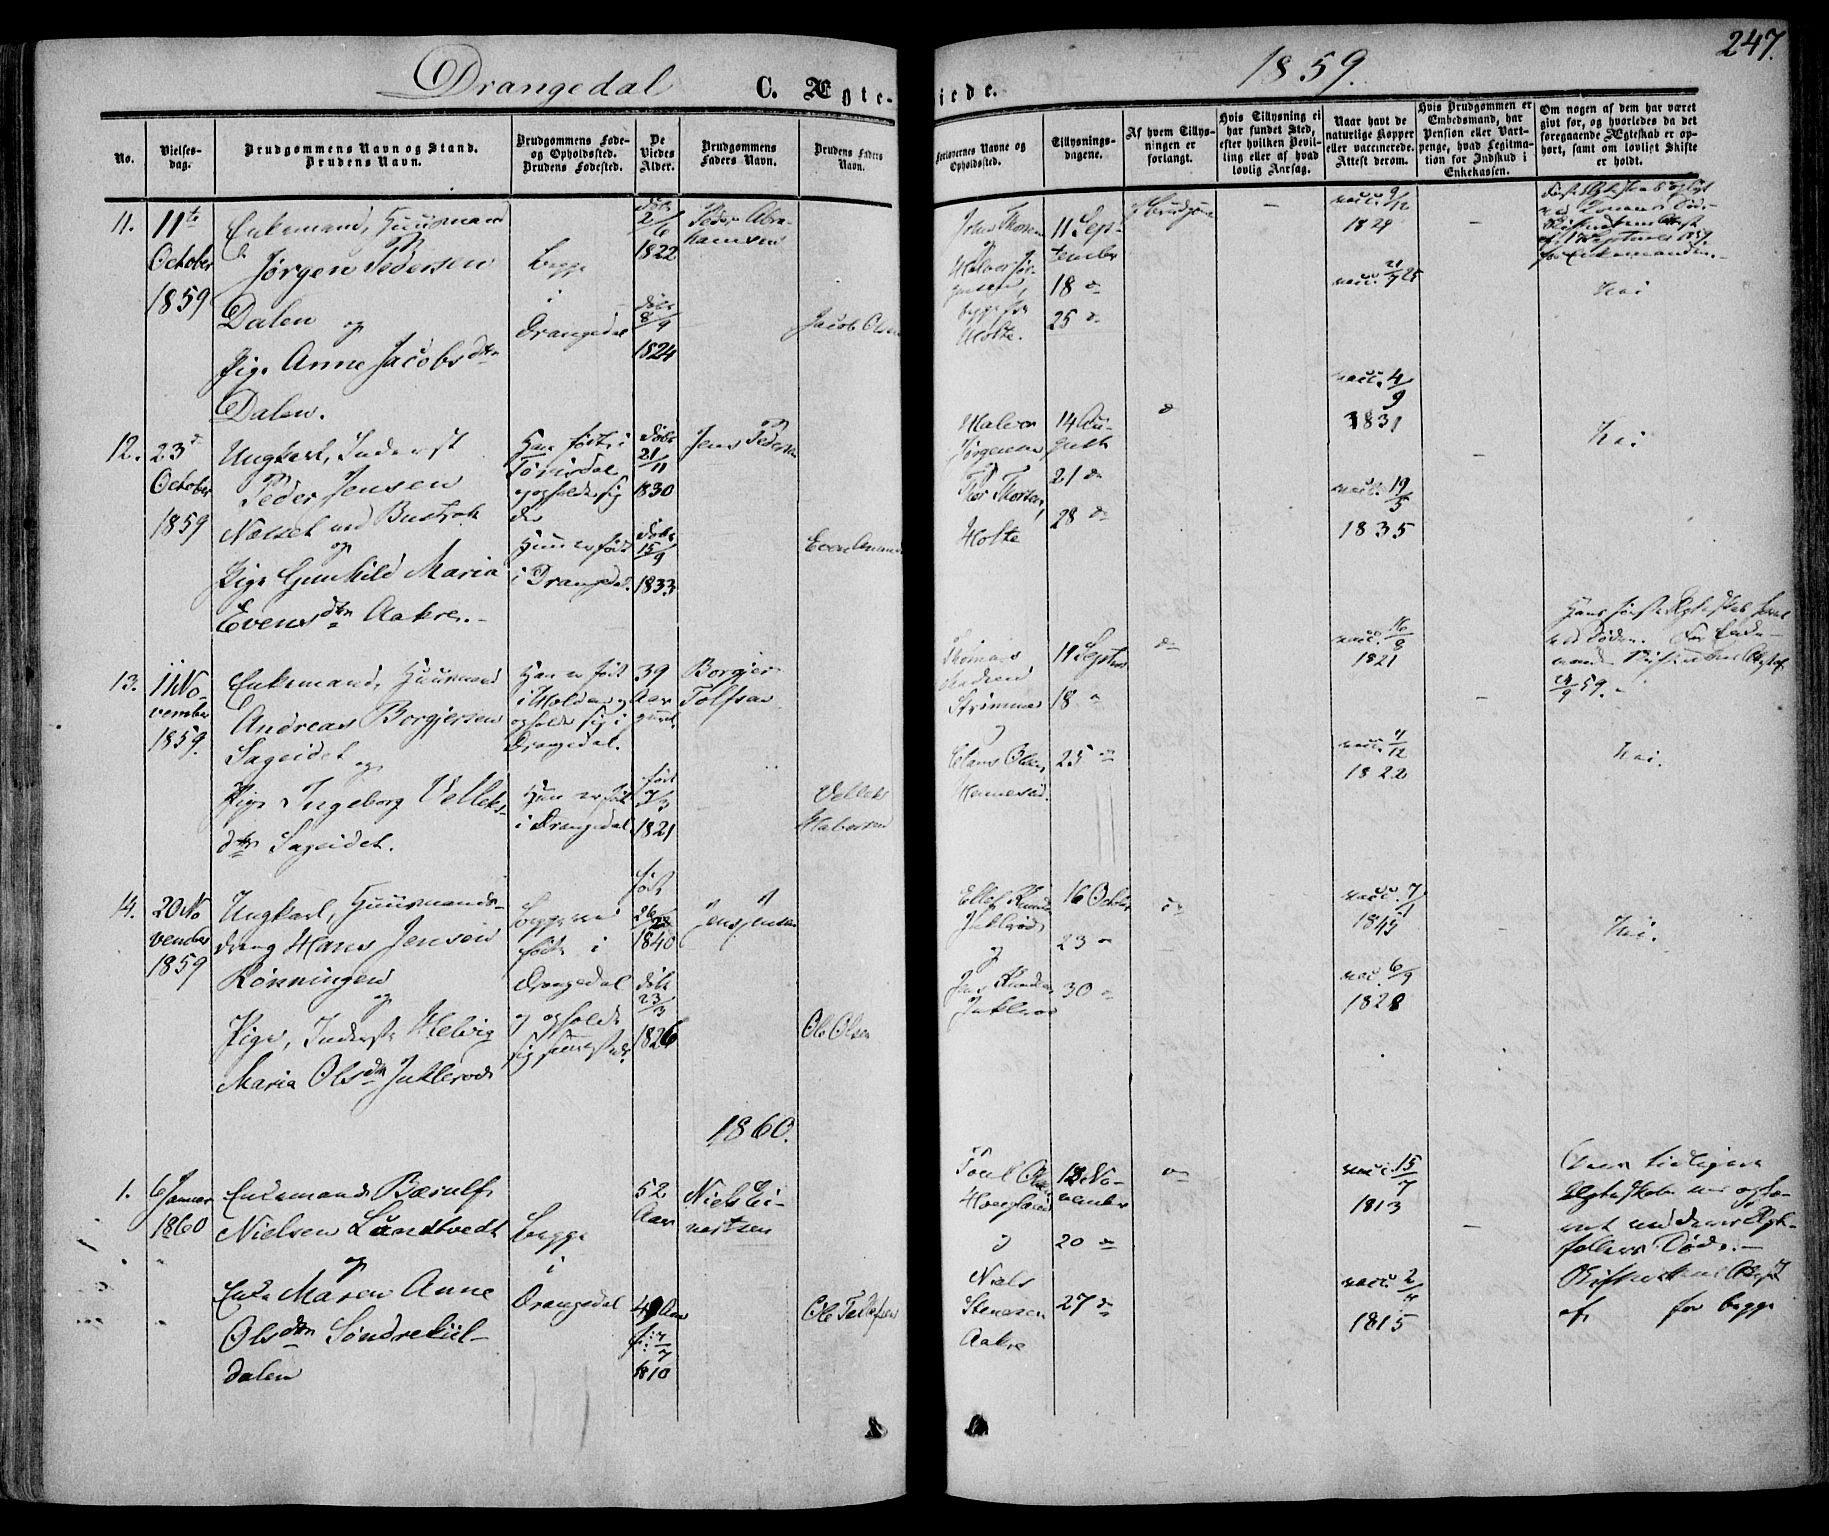 Drangedal
C. Ægte-
viede.
1859.
247.
No.
Vielses-
dag.
Brudgommens Navn og Stand.
Brudens Navn.
Brudgommens Føde-
og Opholdssted.
Brudens Fødested.
De
Viedes
Alder.
Brudgommens
Faders Navn.
Brudens Faders
Navn.
Forlovernes Navne og
Opholdssted.
Tillysnings-
dagene.
Af hvem Tillys-
ningen er
forlangt.
Hvis Tillysning ei
har fundet Sted,
efter hvilken Bevil-
ling eller af hvad
lovlig Aarsag.
Naar havt de
naturlige Kopper
eller vaccinerede.
Attest derom.
Hvis Brudgommen er
Embedsmand, har
Pension eller Vart-
penge, hvad Legitima-
tion for Indskud i
Enkekassen.
Om nogen af dem har været
gift før, og hvorledes da det
foregaaende Ægteskab er op-
hørt, samt om lovligt Skifte
er holdt.
11.
11te
October
1859
Enkemand, Huusmand
Jørgen Pedersen
Dalen og
Pige Anne Jacobsdtr
Dalen.
begge
i
Drangedal
døbt
2/6
1822
døbt
8/9
1824
Peder Abra-
hamsen
Jacob Olsen
John Thorsen
Halvor Jør-
gensen,
begge fra
Holte.
11 Sep-
tember
18 d
25 d
Brudgom
vacc. 9/12
1829
vacc. 21/7 25
Nei
12.
23d
October
1859
Ungkarl, Inderst
Peder Jensen
Næsset ved Bustrak
og
Pige Gunhild Maria
Evensdtr Aakre.
Han født i
Tørisdal
opholder sig
der
Hun er født
i Drangedal.
døbt
21/11
1830
døbt
15/9
1833
Jens Pedersen
Even Amunds
Halvor
Jørgensen
Thor Thorsen,
Holte
14 Au-
gust
21 d
28 d
d
vacc. 4/9
1831
vacc. 19/5
1835
Nei
13.
11 No-
vember
1859.
Enkemand, Huusmand
Andreas Borgjersen
Sageidet og
Pige Ingeborg Velleks-
dtr Sageidet.
Han er født
i Molden og
opholder sig i
Drangedal.
Hun er født
i Drangedal
39
Aar
gml.
født
7/3
1821
Borgjer
Tolfsen
Vellek
Halvorsen
Thomas
Strømmen
og
Claus Olsen
Henneseid.
11 Septbr
18 d
25 d
d
vacc. 16/8
1821
vacc. 4/12
1822
Hans første Ægteskab hævet
ved Døden.
9 59.
Nei.
14.
20 No-
vember
1859
Ungkarl, Huusmands-
dreng Hans Jensen
Rønningen
og
Pige, Inderst Helvig
Maria Olsdtr Jukleröd
begge ere
født i
Drangedal
og opholde
sig sammesteds
født
1840
døbt
23/3
1826
Jens Jensen
Ole Olsen
Ellef
Jukleröd
og
Jens
Jukleröd
16 October
23 d
30 d
d
vacc. 7/1
1843
vacc. 6/9
1828
Nei.
1860.
1.
6 Januar
1860
Enkemand Bærulf
Nielsen Lundtvedt
og
Enke Maren Anne
Olsdtr Søndrekiil-
dalen
begge
i
Drangedal
52
Aar
49 Aar
f: 7/7
1810
Niels Ei-
nertsen
Ole Tellefsen
Poul
Hoegland
og
Niels
Stenersen
Aakre
13 No-
vember
20 d
27 d
d
vacc. 15/7
1813
vacc. 2/4
1815
Deres tidligere
Ægteskaber ere ophæ-
vet ved deres Ægte-
fællers Død.
Skifterettens Attest
af for begge